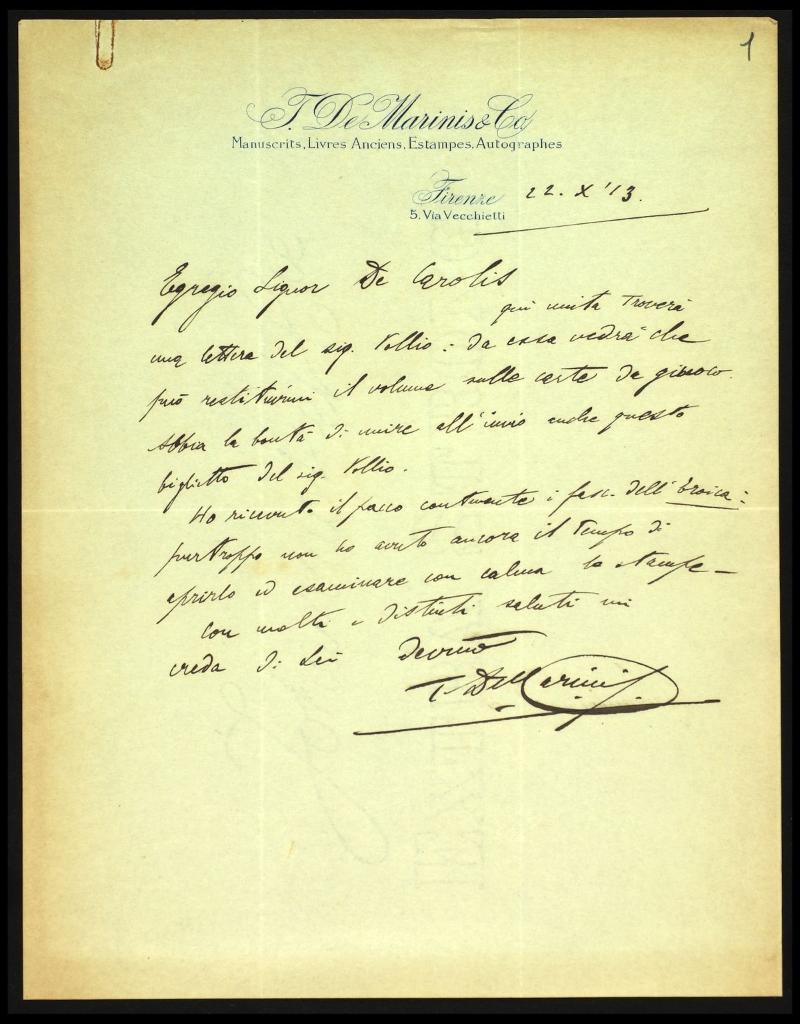 1
T. De Marinis & Co
Manuscrits, Livres Anciens, Estampes, Autographes
Firenze 22. X '13.
5. Via Vecchietti
Egregio Signor De Carolis
qui unita troverà
una lettera del sig. Vollio : da essa vedrà che
può restituirmi il volume sulle carte da giuoco.
Abbia la bontà di unire all'invio anche questo
biglietto del sig. Vollio.
Ho ricevuto il pacco contenente i fasc. dell'Eroica :
purtroppo non ho avuto ancora il tempo di
aprirlo ed esaminare con calma le stampe —
Con molti e distinti saluti mi
creda di Lei devmo
T. De Marinis